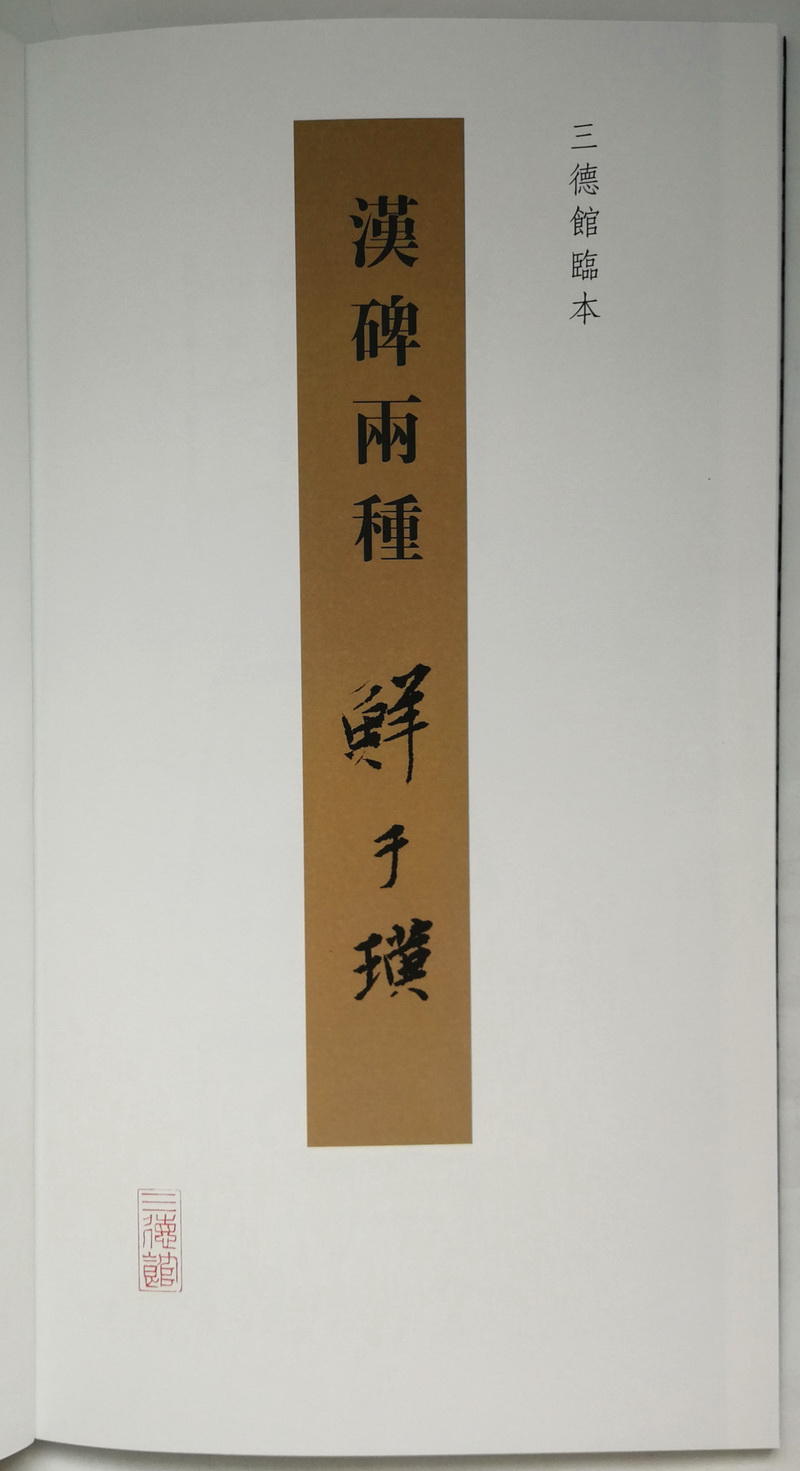 三德館臨本
漢碑兩種
鮮于璜
三德館